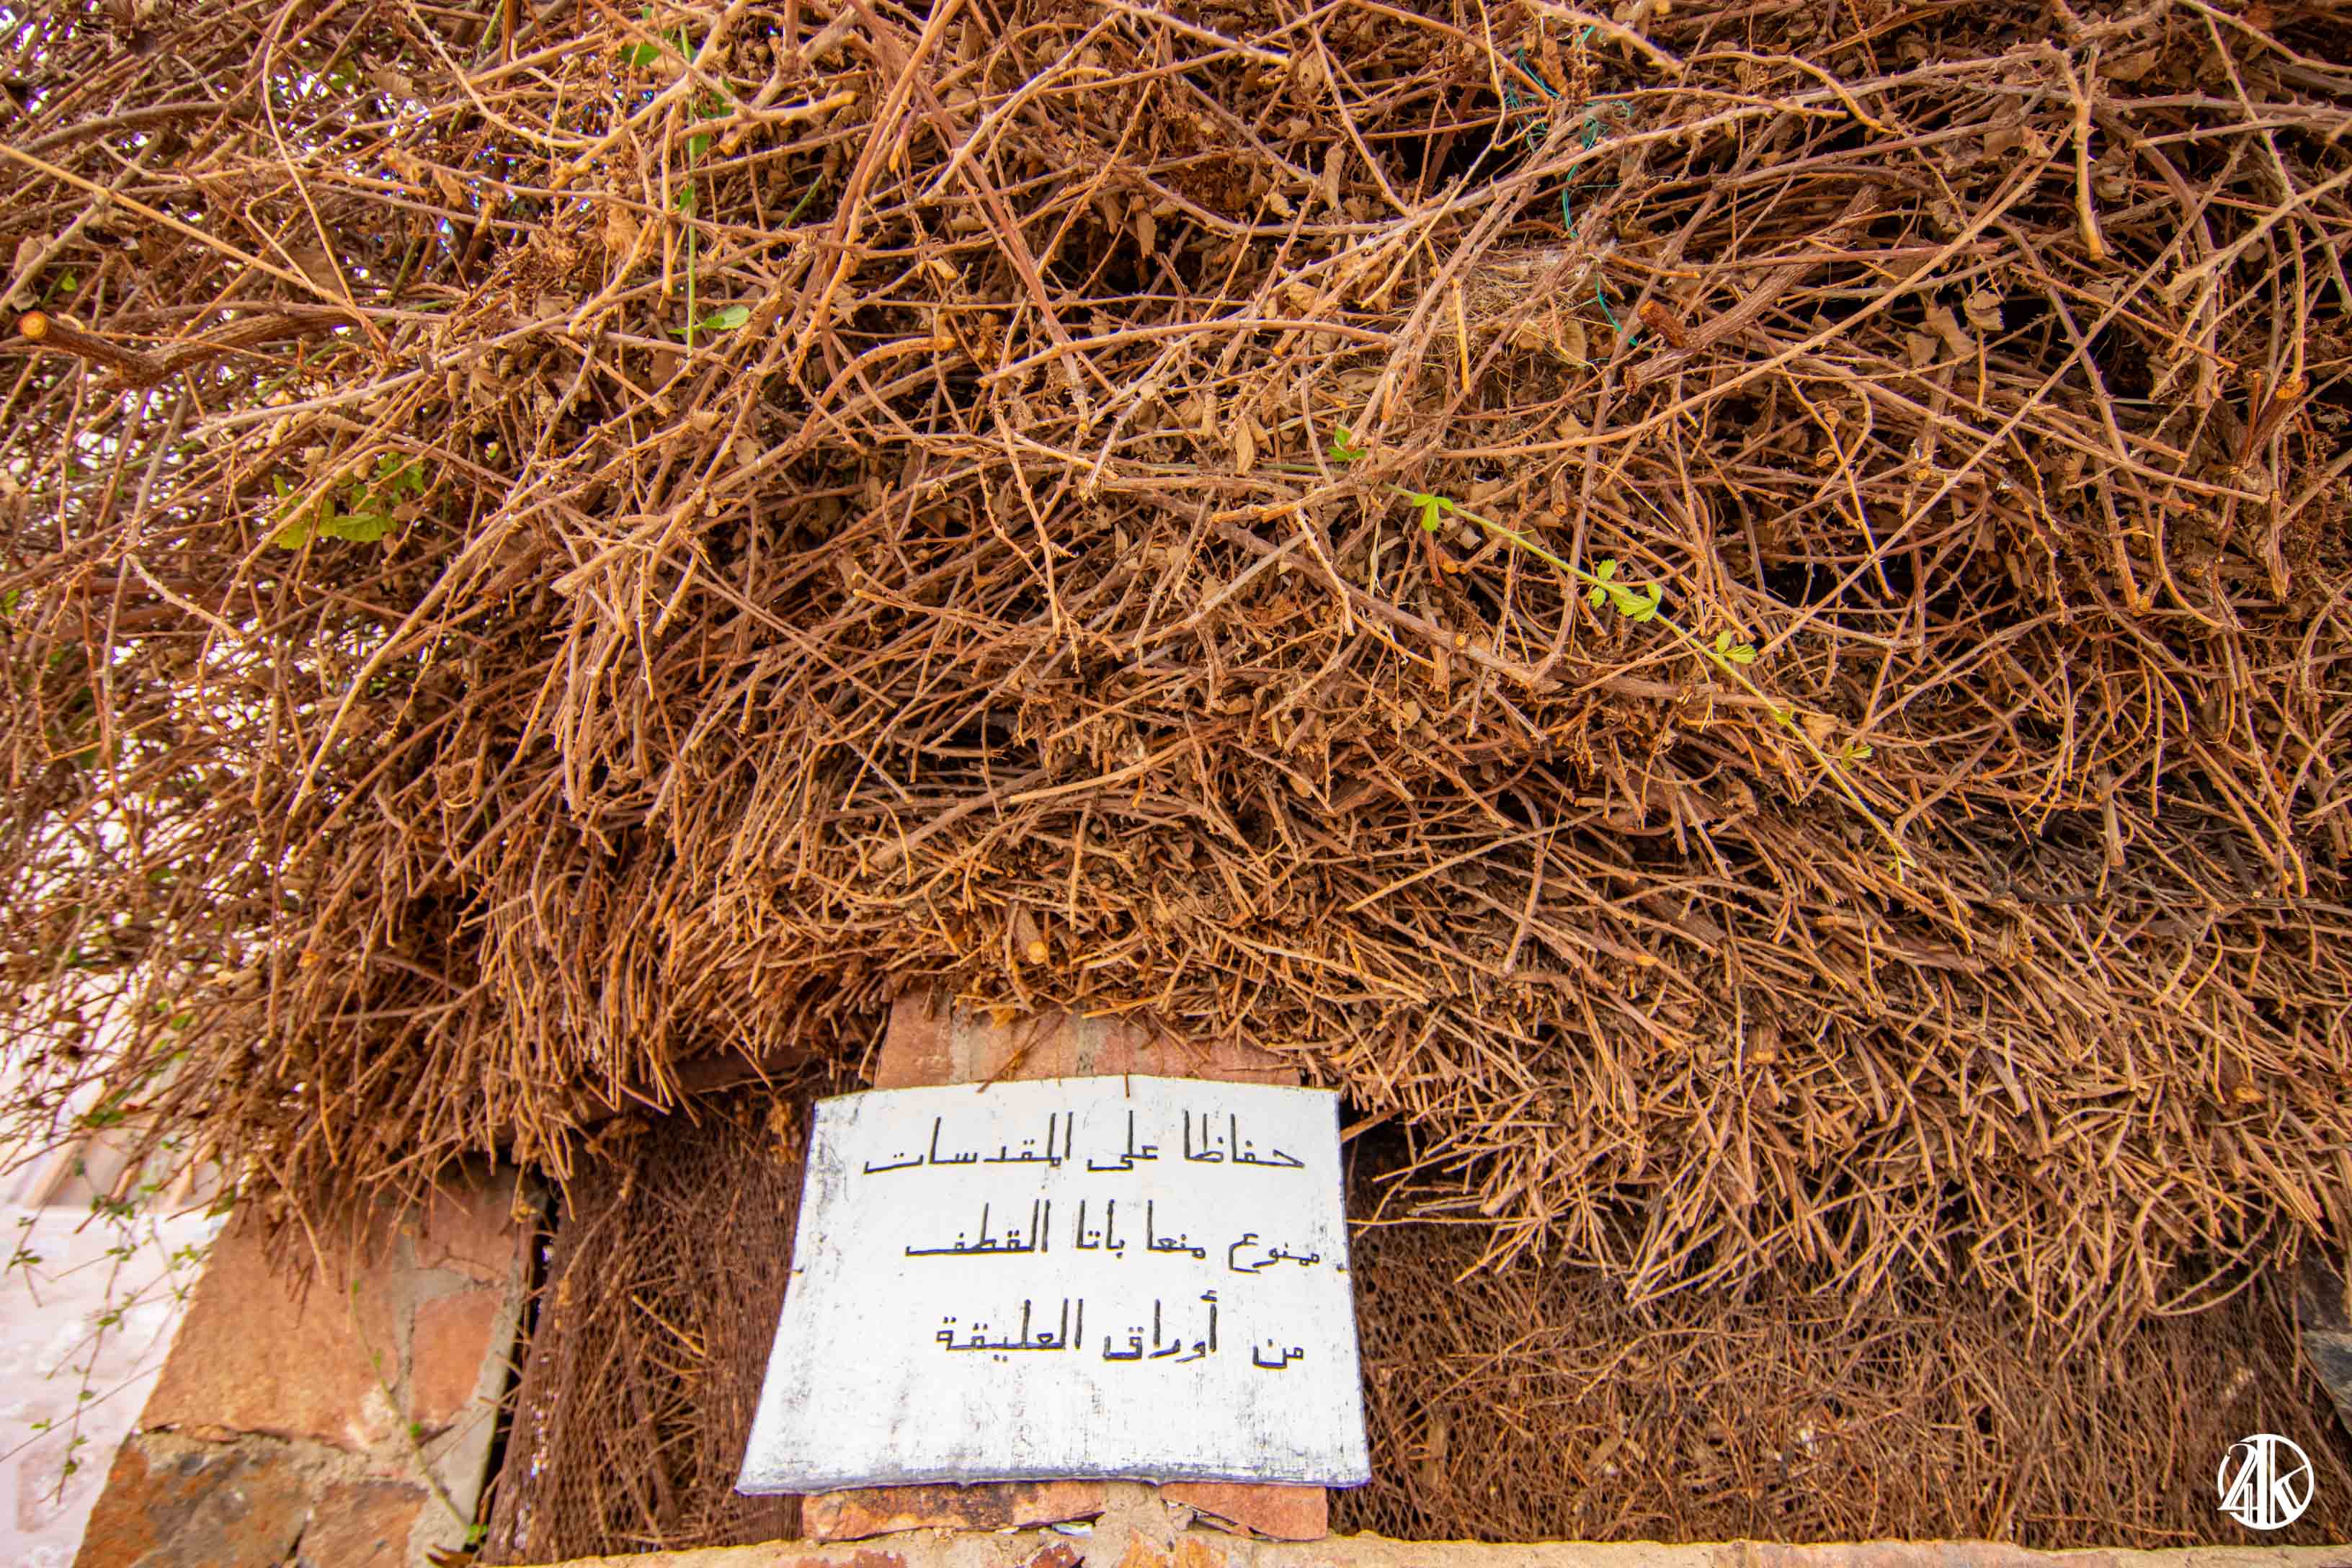 حفاظا على المقدسات
ممنوع منعا باتا القطف
من أوراق العليقة